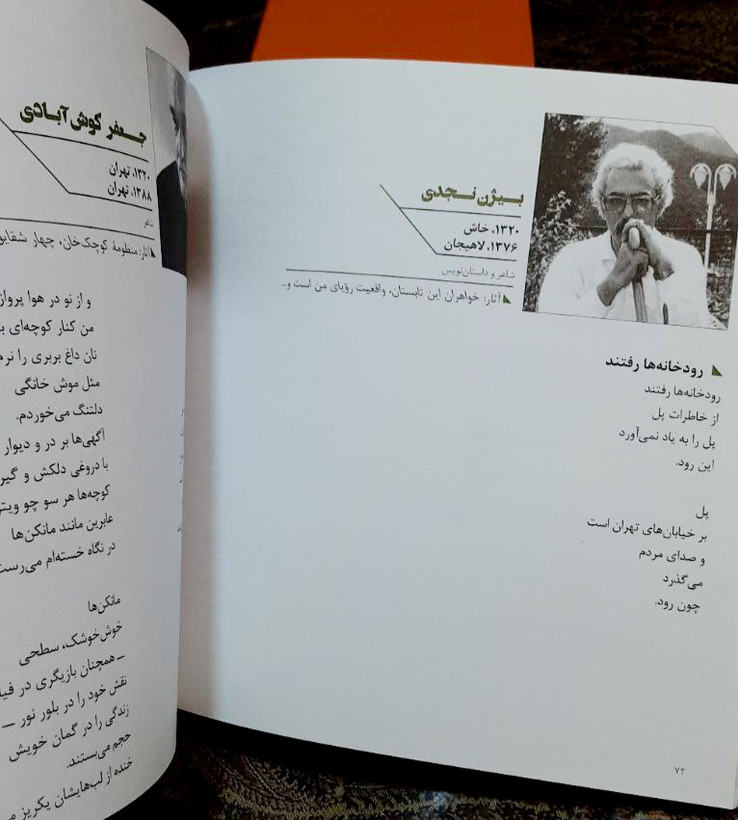 بیژن نجدی
۱۳۲۰، خاش
۱۳۷۶، لاهیجان
شاعر و داستان‌نویس
آثار: خواهران این تابستان، واقعیت رؤیای من است و...
رودخانه‌ها رفتند
رودخانه‌ها رفتند
از خاطرات پل
پل را به یاد نمی‌آورد
این رود.
پل
بر خیابان‌های تهران است
و صدای مردم
می‌گذرد
چون رود.
۷۲
جعفر کوش‌آبادی
۱۳۲۰، تهران
۱۳۸۸، تهران
شاعر
آثار: منظومه کوچک‌خان، چهار
و از نو در هوا
من کنار کوچه‌ای
نان داغ بربری را
مثل موش خانگی
دلتنگ می‌خوردم.
آگهی‌ها بر در و دیوار
با دروغی دلکش و
کوچه‌ها هر سو چو
عابرین مانند مانکن‌ها
در نگاه خسته‌ام
مانکن‌ها
خوش‌خوشک، سطحی
ــ همچنان بازیگری در
نقش خود را در بلور نور ــ
زندگی را در گمان خویش
حجم می‌بستند.
خنده از لب‌هایشان یکریز